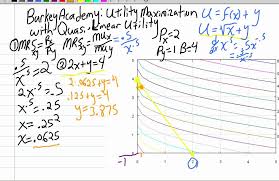 Burkey Academy: Utility Maximization
with Quasi-Linear Utility
U = f(x) + y
U = √x + y
① MRS = Px/Py
MRS = mux/muy = .5/x^.5
Px=2
Py=1 B=4
.5/x^.5 = 2
2x^.5 = .5
x^.5 = .25
x = .25²
x = .0625
② 2x+y=4
2·.0625+y=4
.125+y=4
y=3.875
4
-1
2